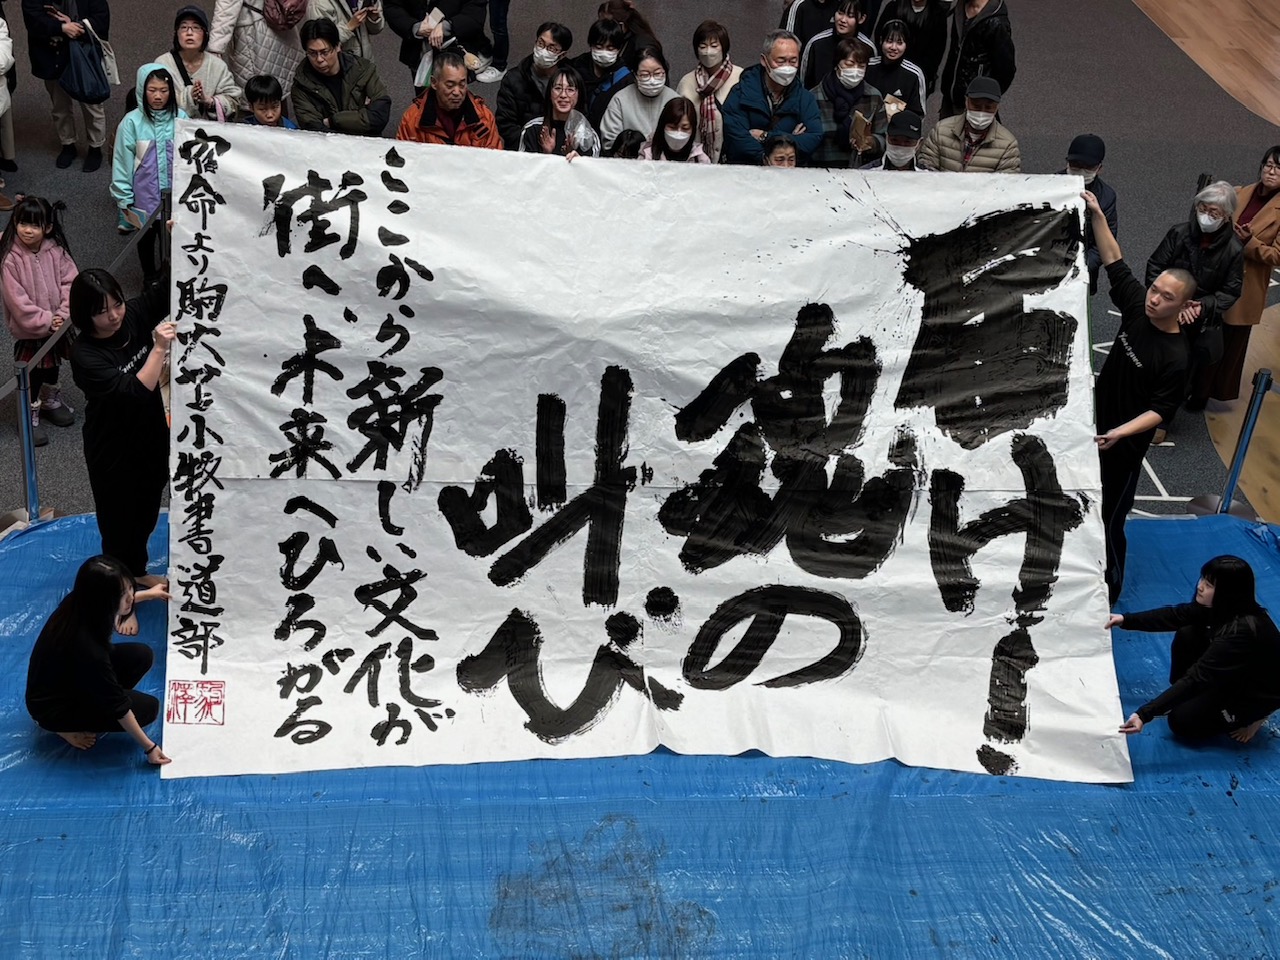 届け！
魂の
叫び
ここから新しい文化が
街へ、未来へひろがる
宿命より 駒大苫小牧書道部